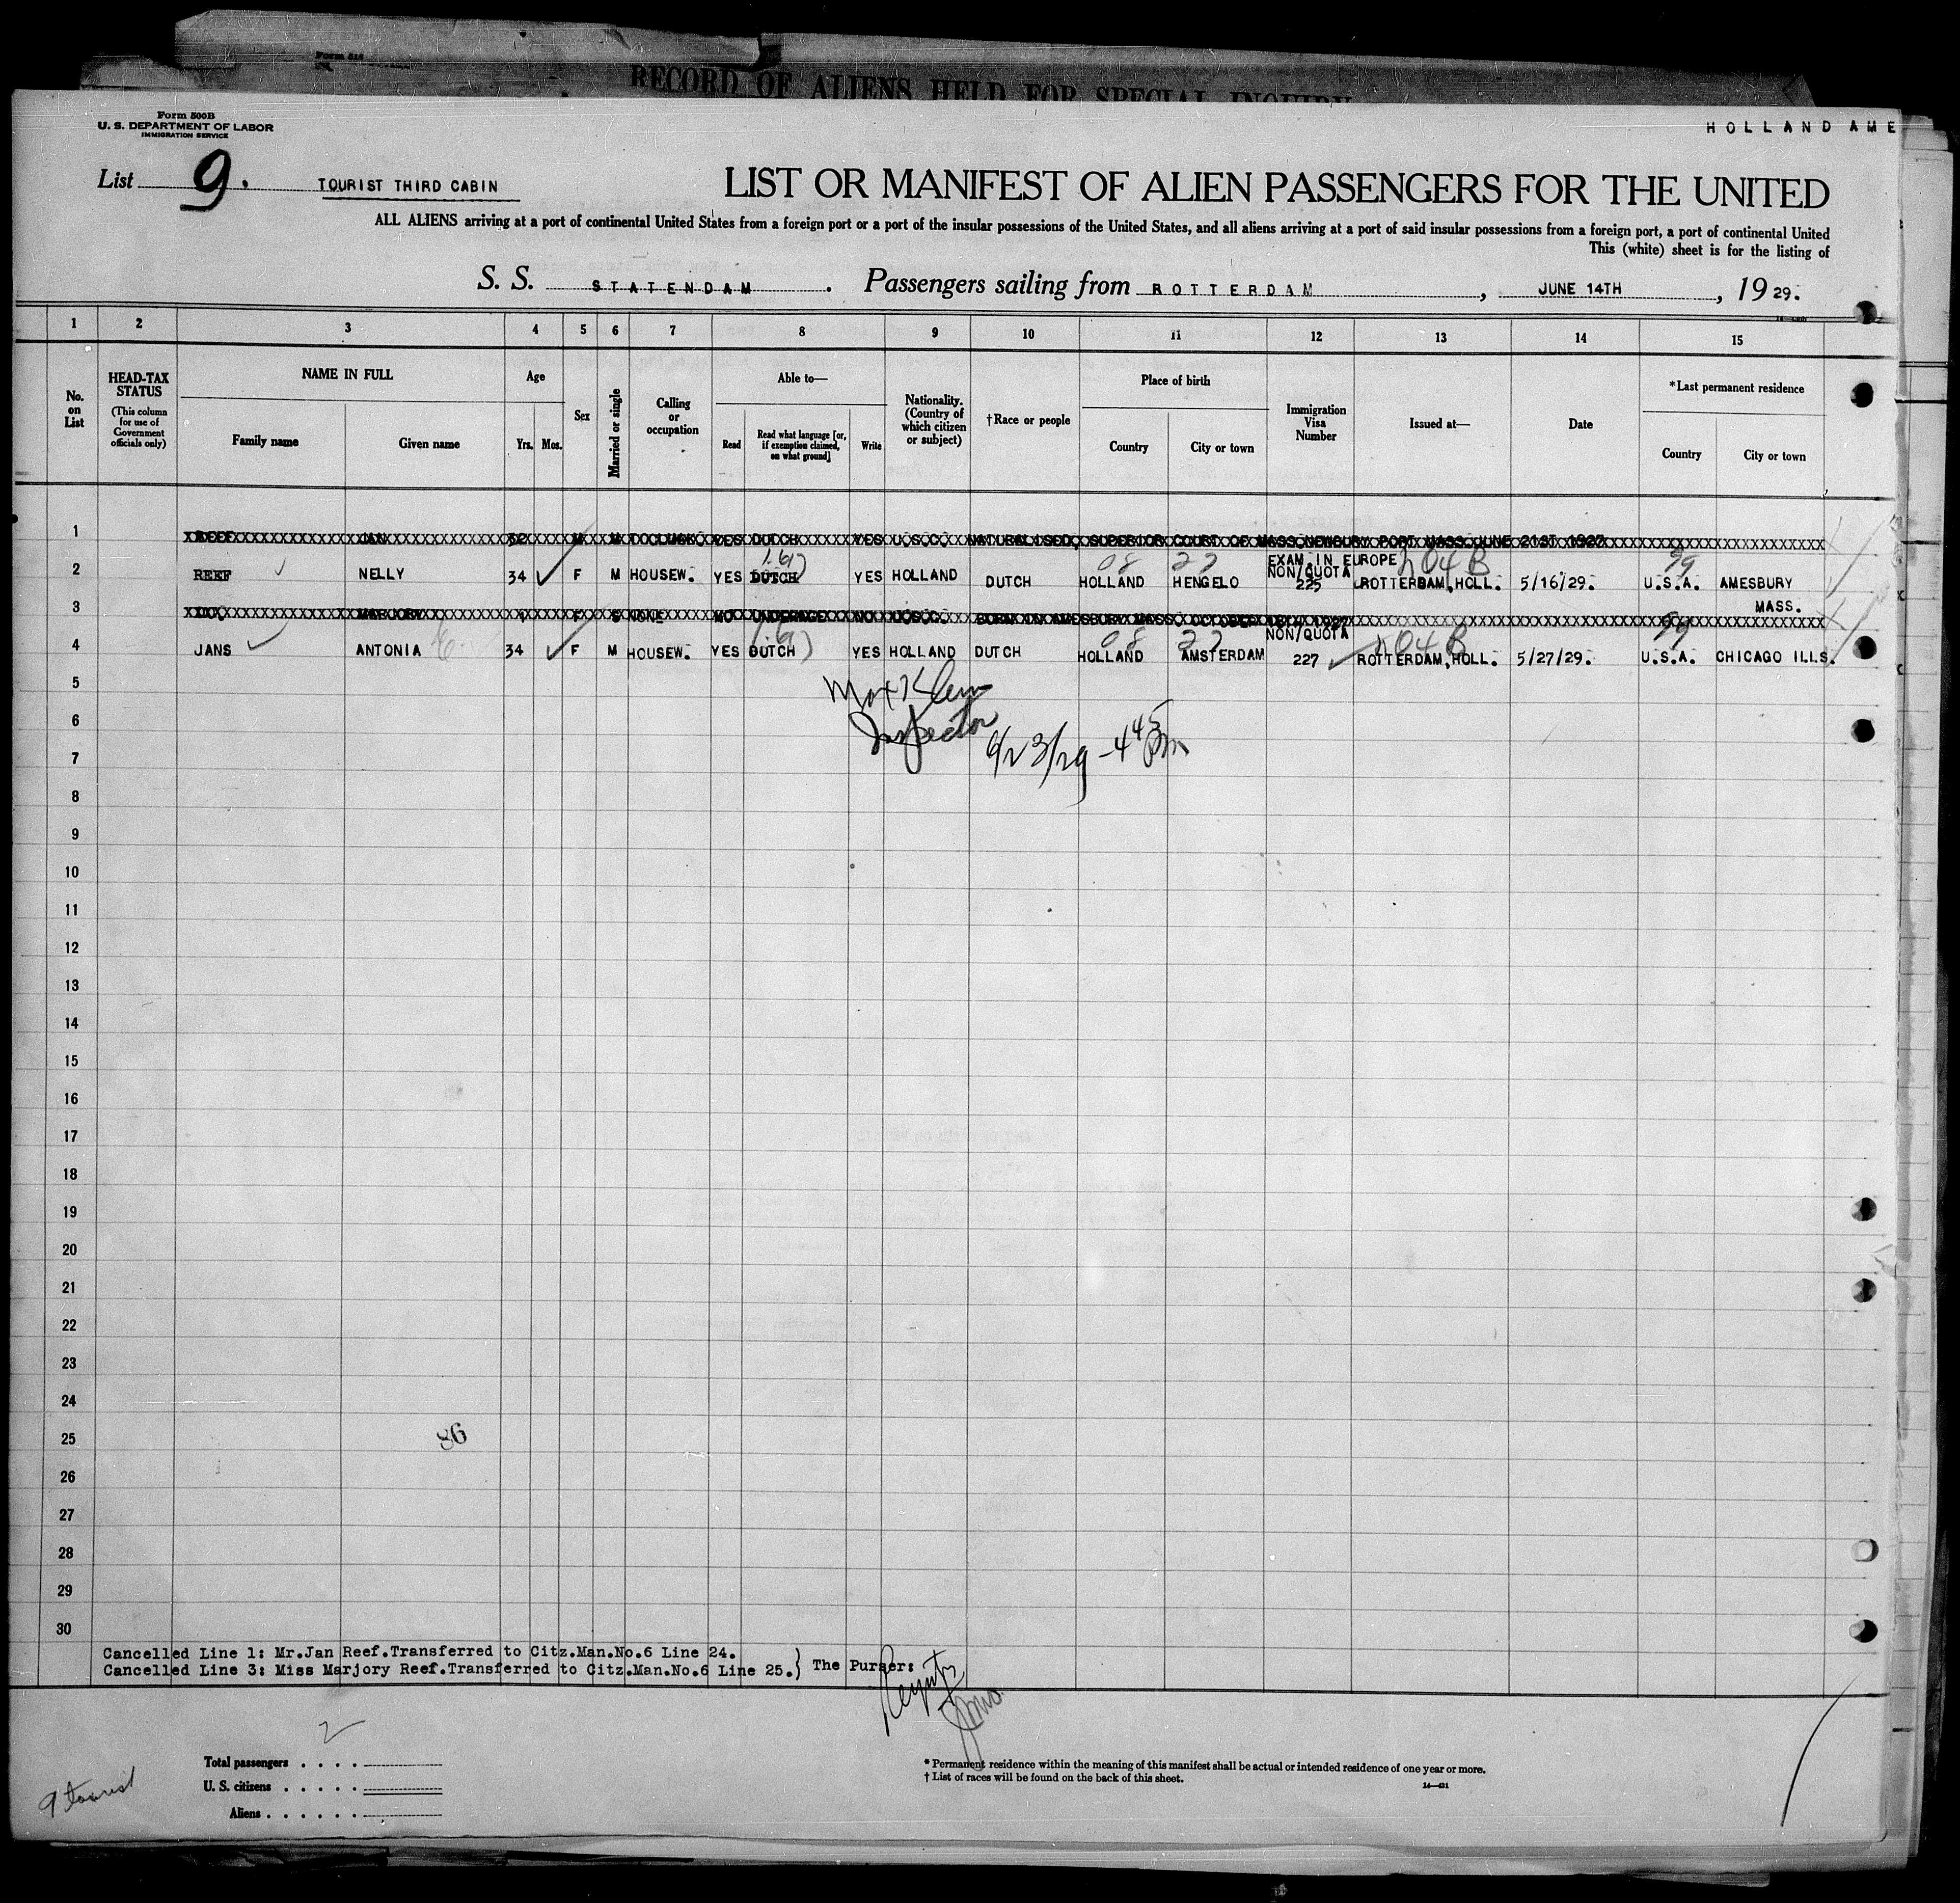 Form 514
RECORD OF ALIENS HELD FOR SPECIAL INQUIRY
Form 500B
U. S. DEPARTMENT OF LABOR
IMMIGRATION SERVICE
HOLLAND AME
List 9. TOURIST THIRD CABIN
LIST OR MANIFEST OF ALIEN PASSENGERS FOR THE UNITED
ALL ALIENS arriving at a port of continental United States from a foreign port or a port of the insular possessions of the United States, and all aliens arriving at a port of said insular possessions from a foreign port, a port of continental United
This (white) sheet is for the listing of
S. S. STATENDAM. Passengers sailing from ROTTERDAM, JUNE 14TH, 1929.
1 2 3 4 5 6 7 8 9 10 11 12 13 14 15
No. on List
HEAD-TAX STATUS
(This column for use of Government officials only)
NAME IN FULL
Family name Given name
Age
Yrs. Mos.
Sex
Married or single
Calling or occupation
Able to—
Read
Read what language [or, if exemption claimed, on what ground]
Write
Nationality. (Country of which citizen or subject)
†Race or people
Place of birth
Country City or town
Immigration Visa Number
Issued at—
Date
*Last permanent residence
Country City or town
1 REEF JAN 32 M M YES DUTCH YES U.S.C. NATURALISED, SUPERIOR COURT OF MASS. NEWBURY PORT MASS. JUNE 21ST 1927
1.6 08 27 EXAM.IN EUROPE 204 B 99
2 REEF NELLY 34 F M HOUSEW. YES DUTCH YES HOLLAND DUTCH HOLLAND HENGELO NON/QUOTA 225 ROTTERDAM,HOLL. 5/16/29. U.S.A. AMESBURY
MASS.
3 DO. MARJORY 1 F S NONE NO UNDERAGE NO U.S.C. BORN IN AMESBURY MASS. OCTOBER 18TH 1927
1.6 08 27 NON/QUOTA 204 B 99
4 JANS ANTONIA 34 F M HOUSEW. YES DUTCH YES HOLLAND DUTCH HOLLAND AMSTERDAM 227 ROTTERDAM,HOLL. 5/27/29. U.S.A. CHICAGO ILLS.
5
Max Klein
6
Inspector
6/23/29 - 4 45 Pm
7
8
9
10
11
12
13
14
15
16
17
18
19
20
21
22
23
24
25
86
26
27
28
29
30
Cancelled Line 1: Mr.Jan Reef.Transferred to Citz.Man.No.6 Line 24.
Cancelled Line 3: Miss Marjory Reef.Transferred to Citz.Man.No.6 Line 25.} The Purser:
2
Total passengers . . . .
U. S. citizens . . . . .
Aliens . . . . . .
9 tourist
* Permanent residence within the meaning of this manifest shall be actual or intended residence of one year or more.
† List of races will be found on the back of this sheet.
14—431